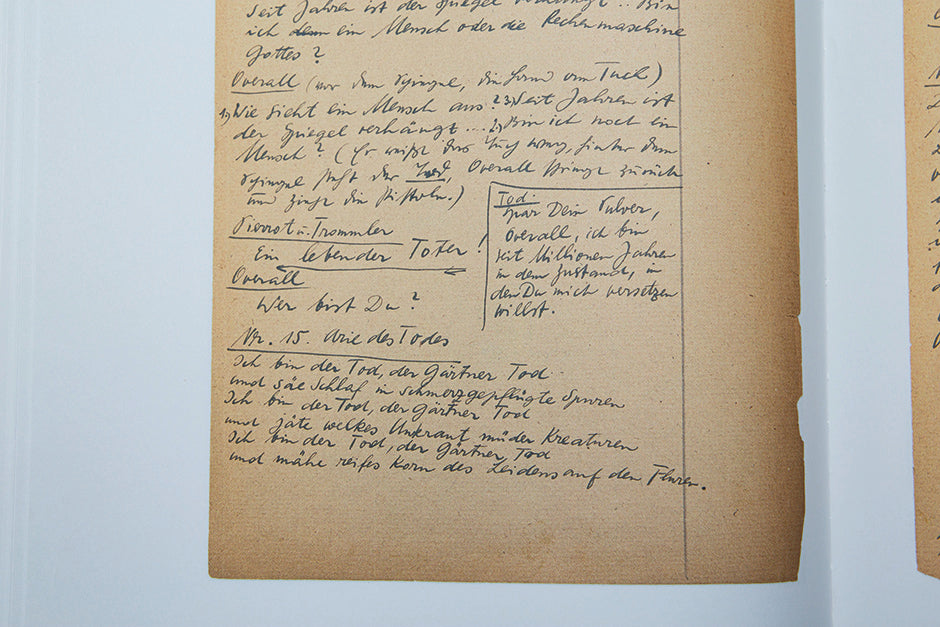 Seit Jahren ist der Spiegel verhängt .. Bin
ich denn ein Mensch oder die Rechenmaschine
Gottes?
Overall (vor dem Spiegel, die Hand am Tuch)
1.) Wie sieht ein Mensch aus? 3.) Seit Jahren ist
der Spiegel verhängt ... 2.) Bin ich noch ein
Mensch? (Er reißt das Tuch weg, hinter dem
Spiegel steht der Tod, Overall springt zurück
und zieht die Pistole.)
Pierrot u. Trommler
Ein lebender Toter!
Overall
Wer bist Du?
Tod:
Spar Dein Pulver,
Overall, ich bin
seit Millionen Jahren
in dem Zustand, in
den Du mich versetzen
willst.
Nr. 15. Arie des Todes
Ich bin der Tod, der Gärtner Tod
und säe Schlaf in schmerzgepflügte Spuren
Ich bin der Tod, der Gärtner Tod
und jäte welkes Unkraut müder Kreaturen
Ich bin der Tod, der Gärtner Tod
und mähe reifes Korn des Leidens auf den Fluren.